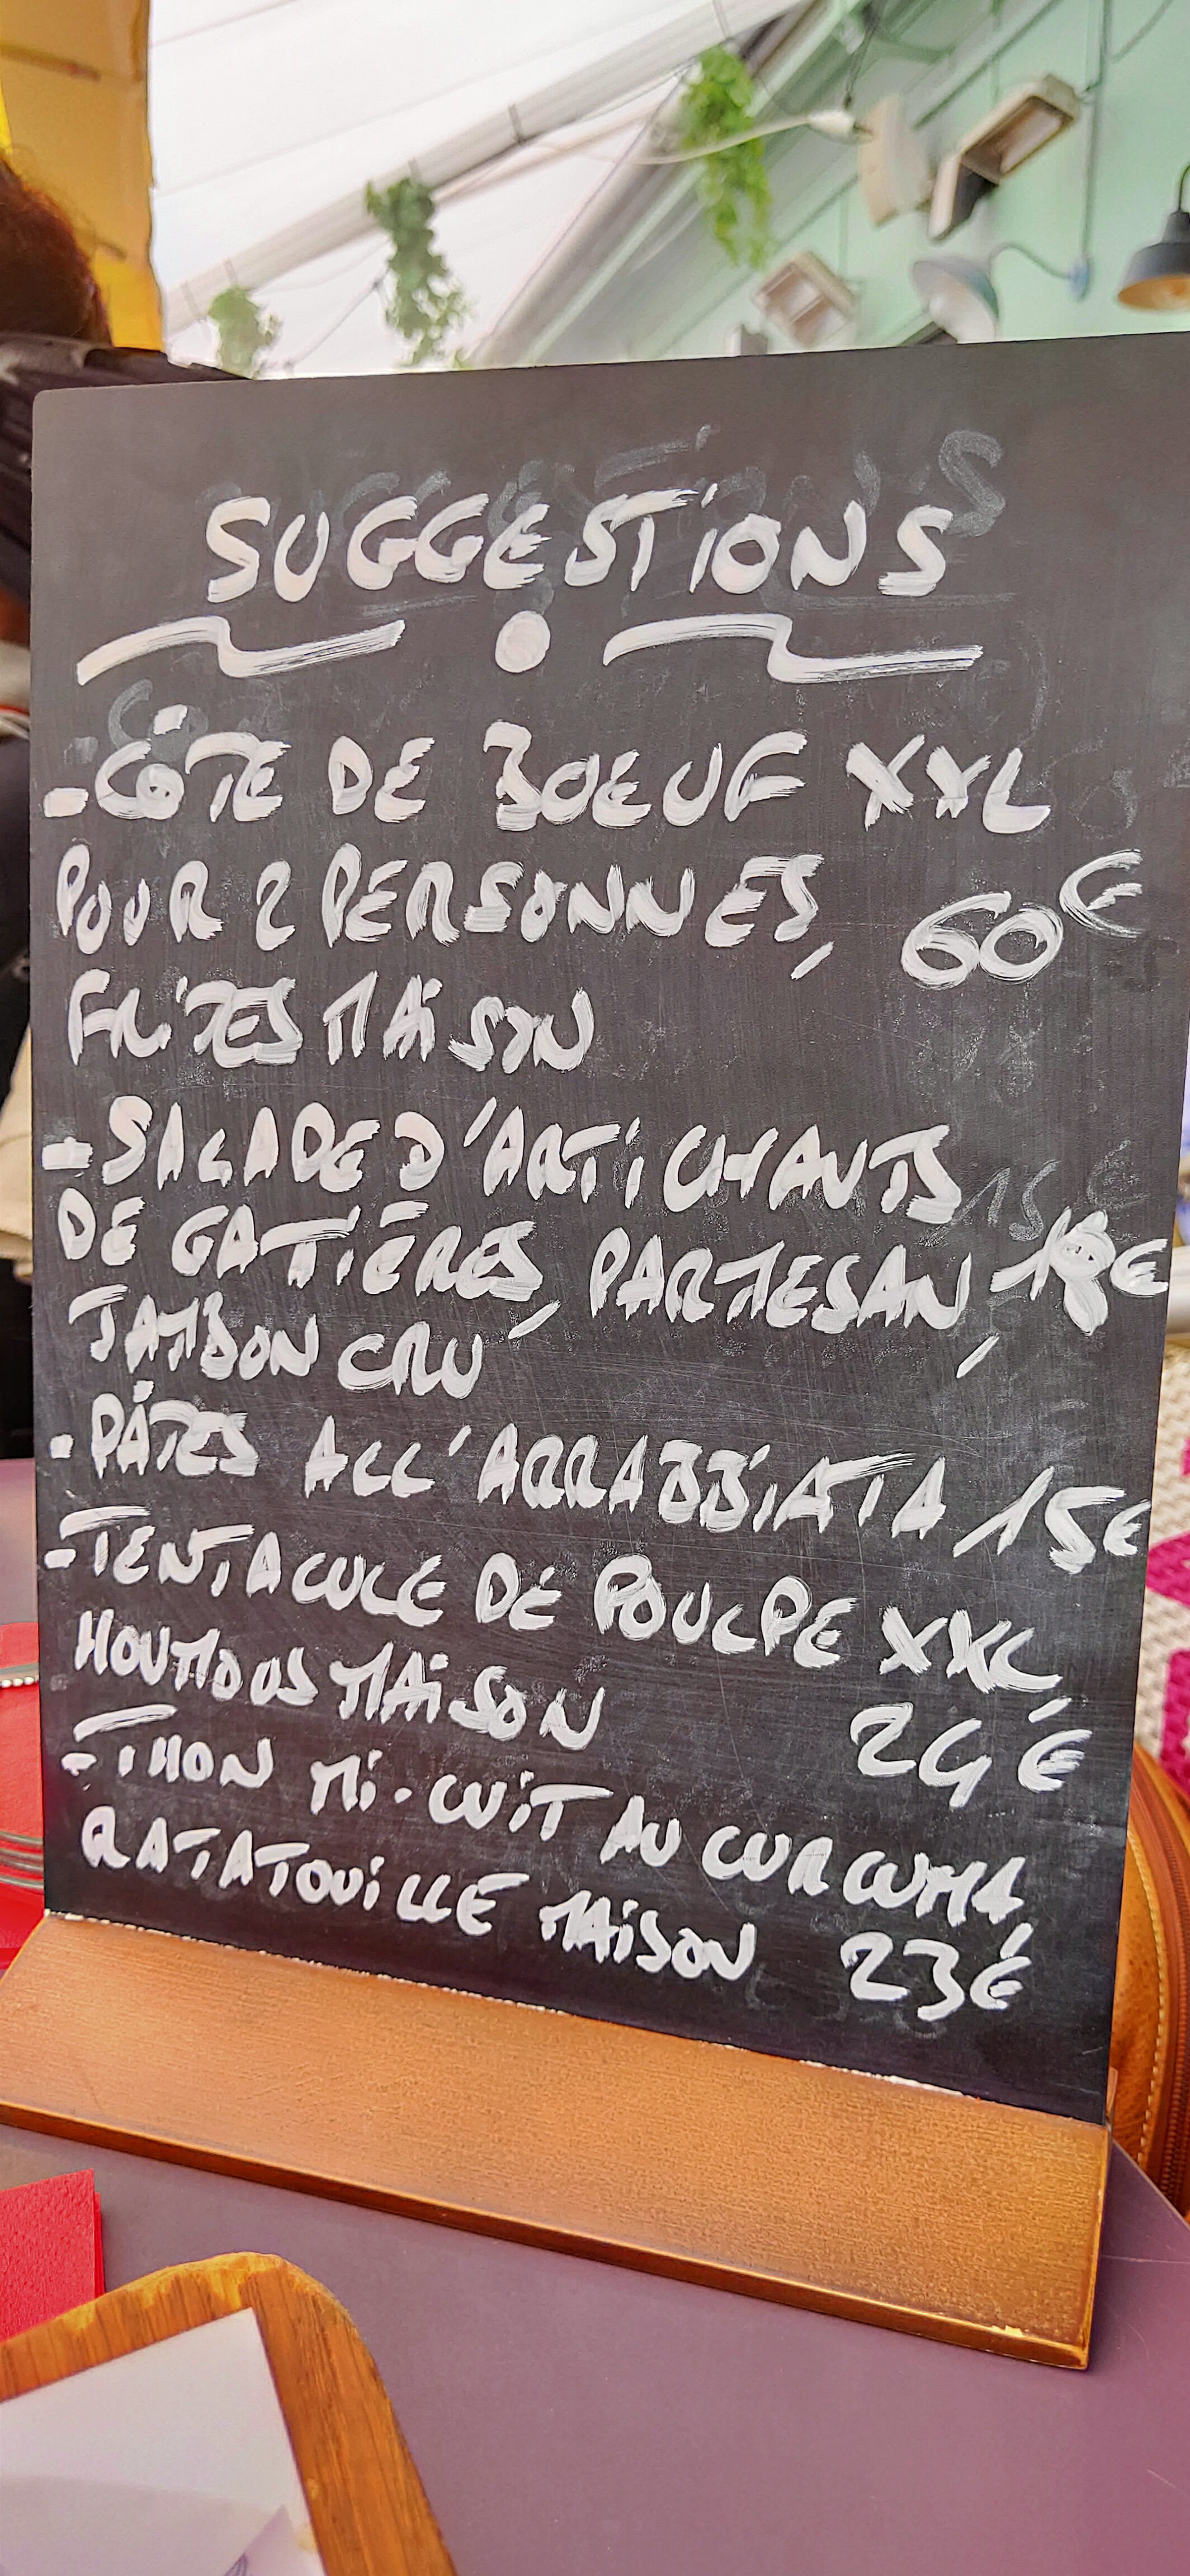 SUGGESTIONS
- CÔTE DE BOEUF XXL
POUR 2 PERSONNES, 60€
FRITES MAISON
- SALADE D'ARTICHAUTS
DE GATIÈRES, PARMESAN, 18€
JAMBON CRU
- PÂTES ALL'ARRABBIATA 15€
- TENTACULE DE POULPE XXL,
HOUMOUS MAISON 24€
- THON MI-CUIT AU CURCUMA,
RATATOUILLE MAISON 23€